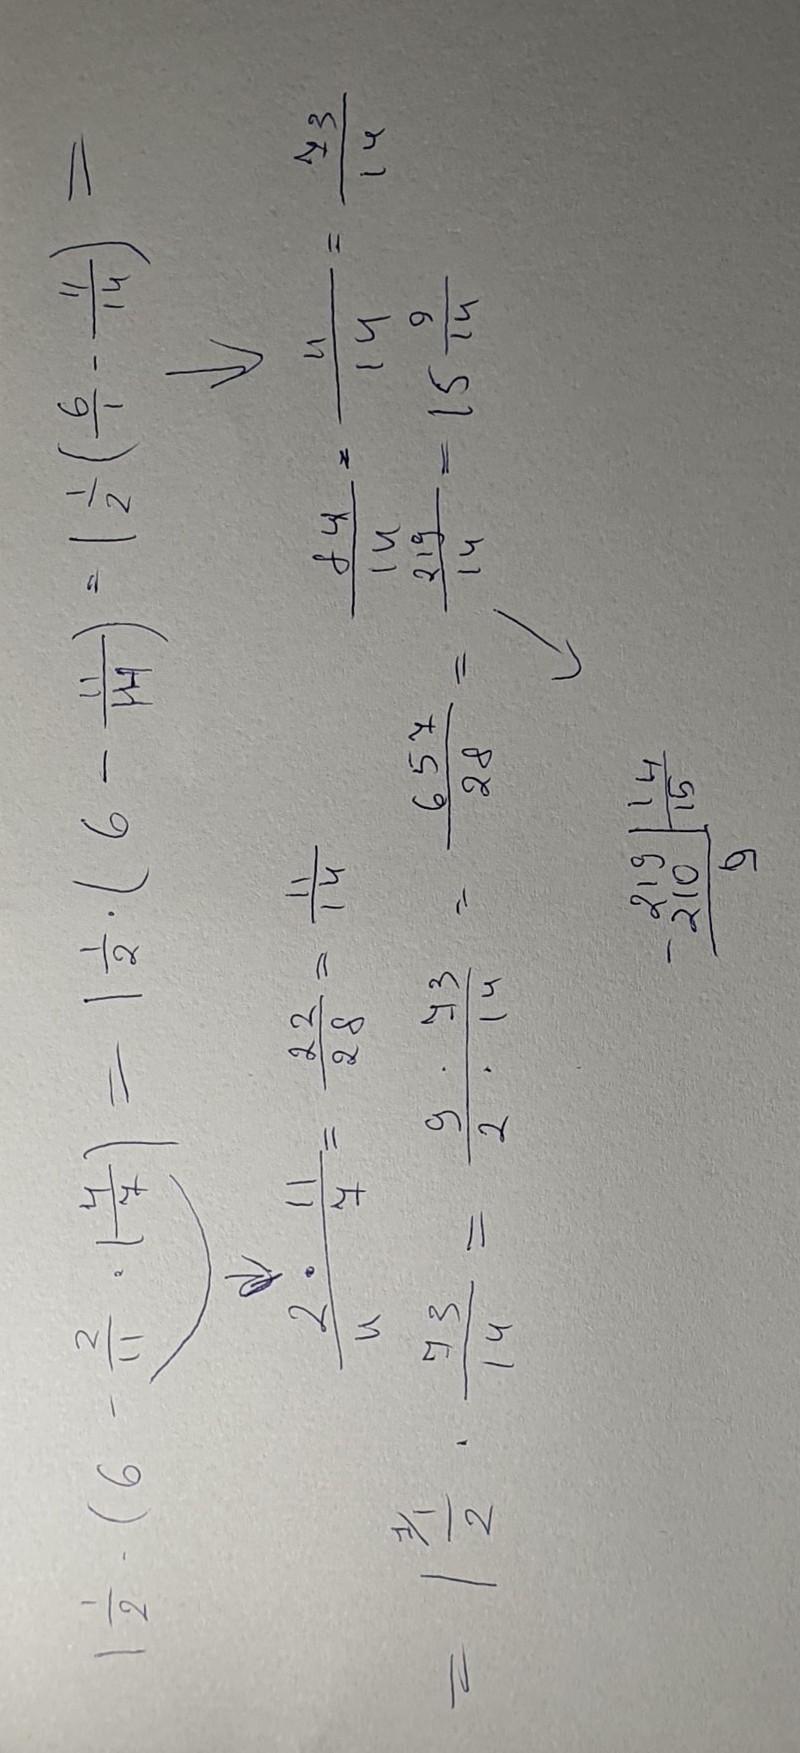 1 1/2 · (6 - 2/11 · 1 4/7) = 1 1/2 · (6 - 11/14) = 1 1/2 (6/1 - 11/14) =
2/4 · 11/7 = 22/28 = 11/14
84/14 = 11/14 = 73/14
= 1 1/2 · 73/14 = 9 · 73 / 2 · 14 = 657/28 = 219/14 = 15 9/14
- 219 | 14
210 | 15
9